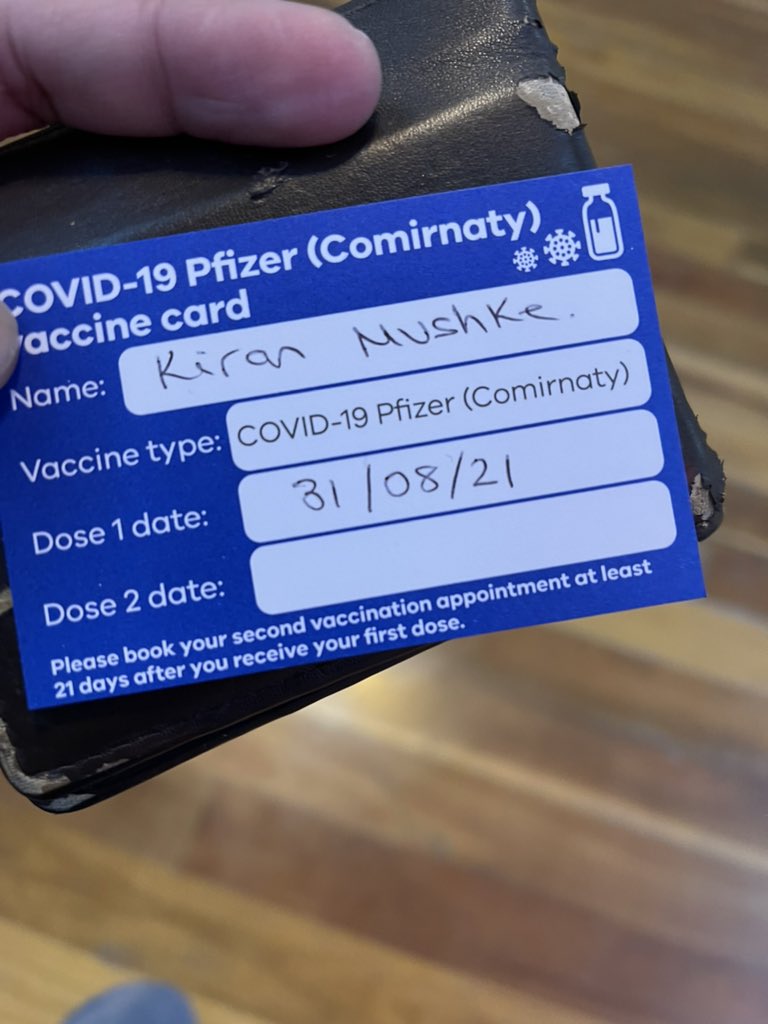 COVID-19 Pfizer (Comirnaty)
vaccine card
Name: Kiran Mushke.
Vaccine type: COVID-19 Pfizer (Comirnaty)
Dose 1 date: 31/08/21
Dose 2 date:
Please book your second vaccination appointment at least
21 days after you receive your first dose.